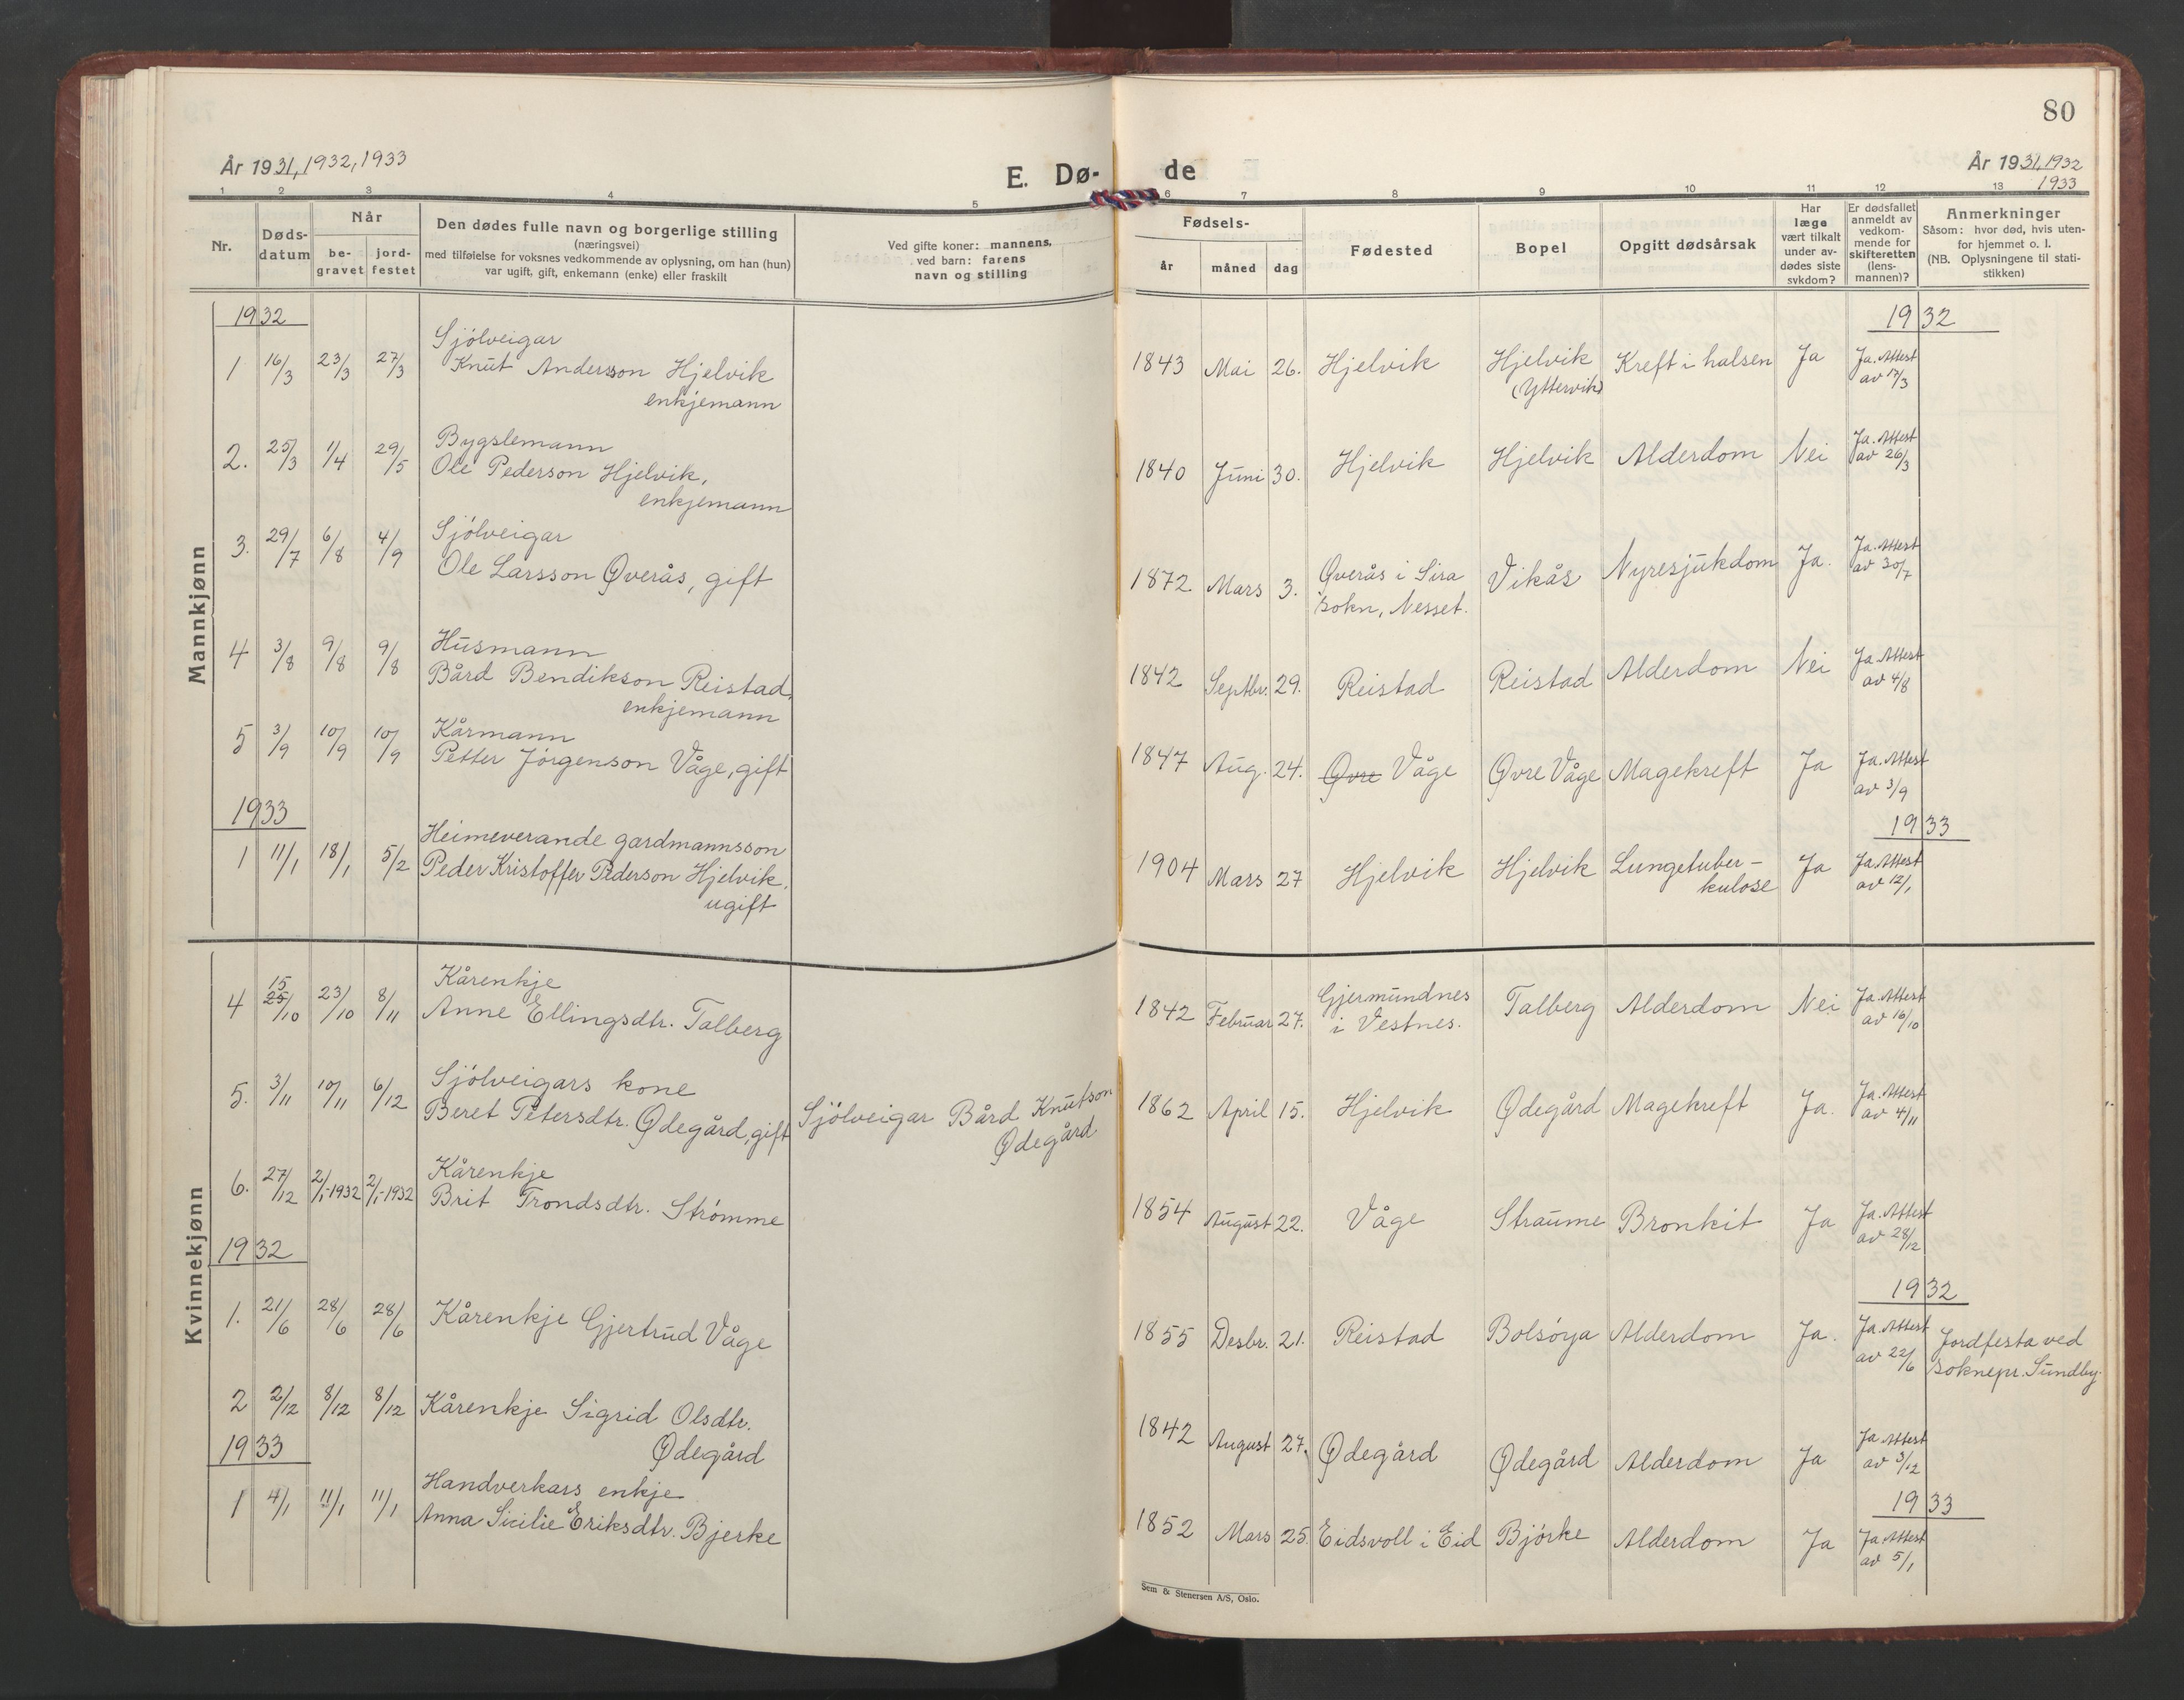 80
År 1931, 1932, 1933
E. Dø-
de
År 1931, 1932
1933
1 2 3 4 5 6 7 8 9 10 11 12 13
Nr.
Døds-
datum
Når
be-
gravet
jord-
festet
Den dødes fulle navn og borgerlige stilling
(næringsvei)
med tilføielse for voksnes vedkommende av oplysning, om han (hun)
var ugift, gift, enkemann (enke) eller fraskilt
Ved gifte koner: mannens,
ved barn: farens
navn og stilling
Fødsels-
år måned dag
Fødested
Bopel
Opgitt dødsårsak
Har
læge
vært tilkalt
under av-
dødes siste
sykdom?
Er dødsfallet
anmeldt av
vedkom-
mende for
skifteretten
(lens-
mannen)?
Anmerkninger
Såsom: hvor død, hvis uten-
for hjemmet o. l.
(NB. Oplysningene til stati-
stikken)
Mannkjønn
1932
1932
Sjölveigar
1 16/3 23/3 27/3 Knut Andersson Hjelvik
enkjemann
1843 Mai 26. Hjelvik Hjelvik Kreft i halsen Ja Ja. Attest
(Yttervik) av 17/3
Bygslemann
2. 25/3 1/4 29/5 Ole Pederson Hjelvik,
enkjemann
1840 Juni 30. Hjelvik Hjelvik Alderdom Nei Ja. Attest
av 26/3
Sjölveigar
3. 29/7 6/8 4/9 Ole Larsson Øverås, gift
1872. Mars 3. Øverås i Sira Vikås Nyresjukdom Ja. Ja. Attest
sokn, Nesset. av 30/7
Husmann
4 3/8 9/8 9/8 Bård Bendikson Reistad,
enkjemann
1842 Septbr. 29. Reistad Reistad Alderdom Nei Ja. Attest
av 4/8
Kårmann
5 3/9 10/9 10/9 Petter Jörgenson Våge, gift
1847 Aug. 24. Øvre Våge Øvre Våge Magekreft Ja Ja. Attest
av 3/9
1933
1933
Heimeverande gardmannsson
1 11/1 18/1 5/2 Peder Kristoffer Pederson Hjelvik,
ugift
1904 Mars 27 Hjelvik Hjelvik Lungetuber-
kulose Ja Ja. Attest
av 12/1
Kvinnekjønn
Kårenkje
4 15 25/10 23/10 8/11 Anne Ellingsdtr. Talberg
1842 Februar 27. Gjermundnes
i Vestnes. Talberg Alderdom Nei Ja. Attest
av 16/10
Sjölveigars kone
5. 3/11 10/11 6/12 Beret Petersdtr. Ødegård, gift Sjölveigar Bård Knutson
Ødegård
1862 April 15. Hjelvik Ødegård Magekreft Ja. Ja. Attest
av 4/11
Kårenkje
6. 27/12 2/1-1932 2/1-1932 Brit Trondsdtr. Strömme
1854 August 22. Våge Straume Bronkit Ja Ja. Attest
av 28/12
1932
1932
1. 21/6 28/6 28/6 Kårenkje Gjertrud Våge
1855 Desbr. 21. Reistad Bolsöya Alderdom Ja. Ja. Attest
av 22/6 Jordfesta ved
soknepr. Sundby.
2 2/12 8/12 8/12 Kårenkje Sigrid Olsdtr.
Ødegård
1842 August 27. Ødegård Ødegård Alderdom Ja Ja. Attest
av 3/12
1933
1933
Handverkars enkje
1 4/1 11/1 11/1 Anna Sicilie Eriksdtr. Bjerke
1852 Mars 25. Eidsvoll i Eid Bjórke Alderdom Ja Ja. Attest
av 5/1
Sem & Stenersen A/S, Oslo.